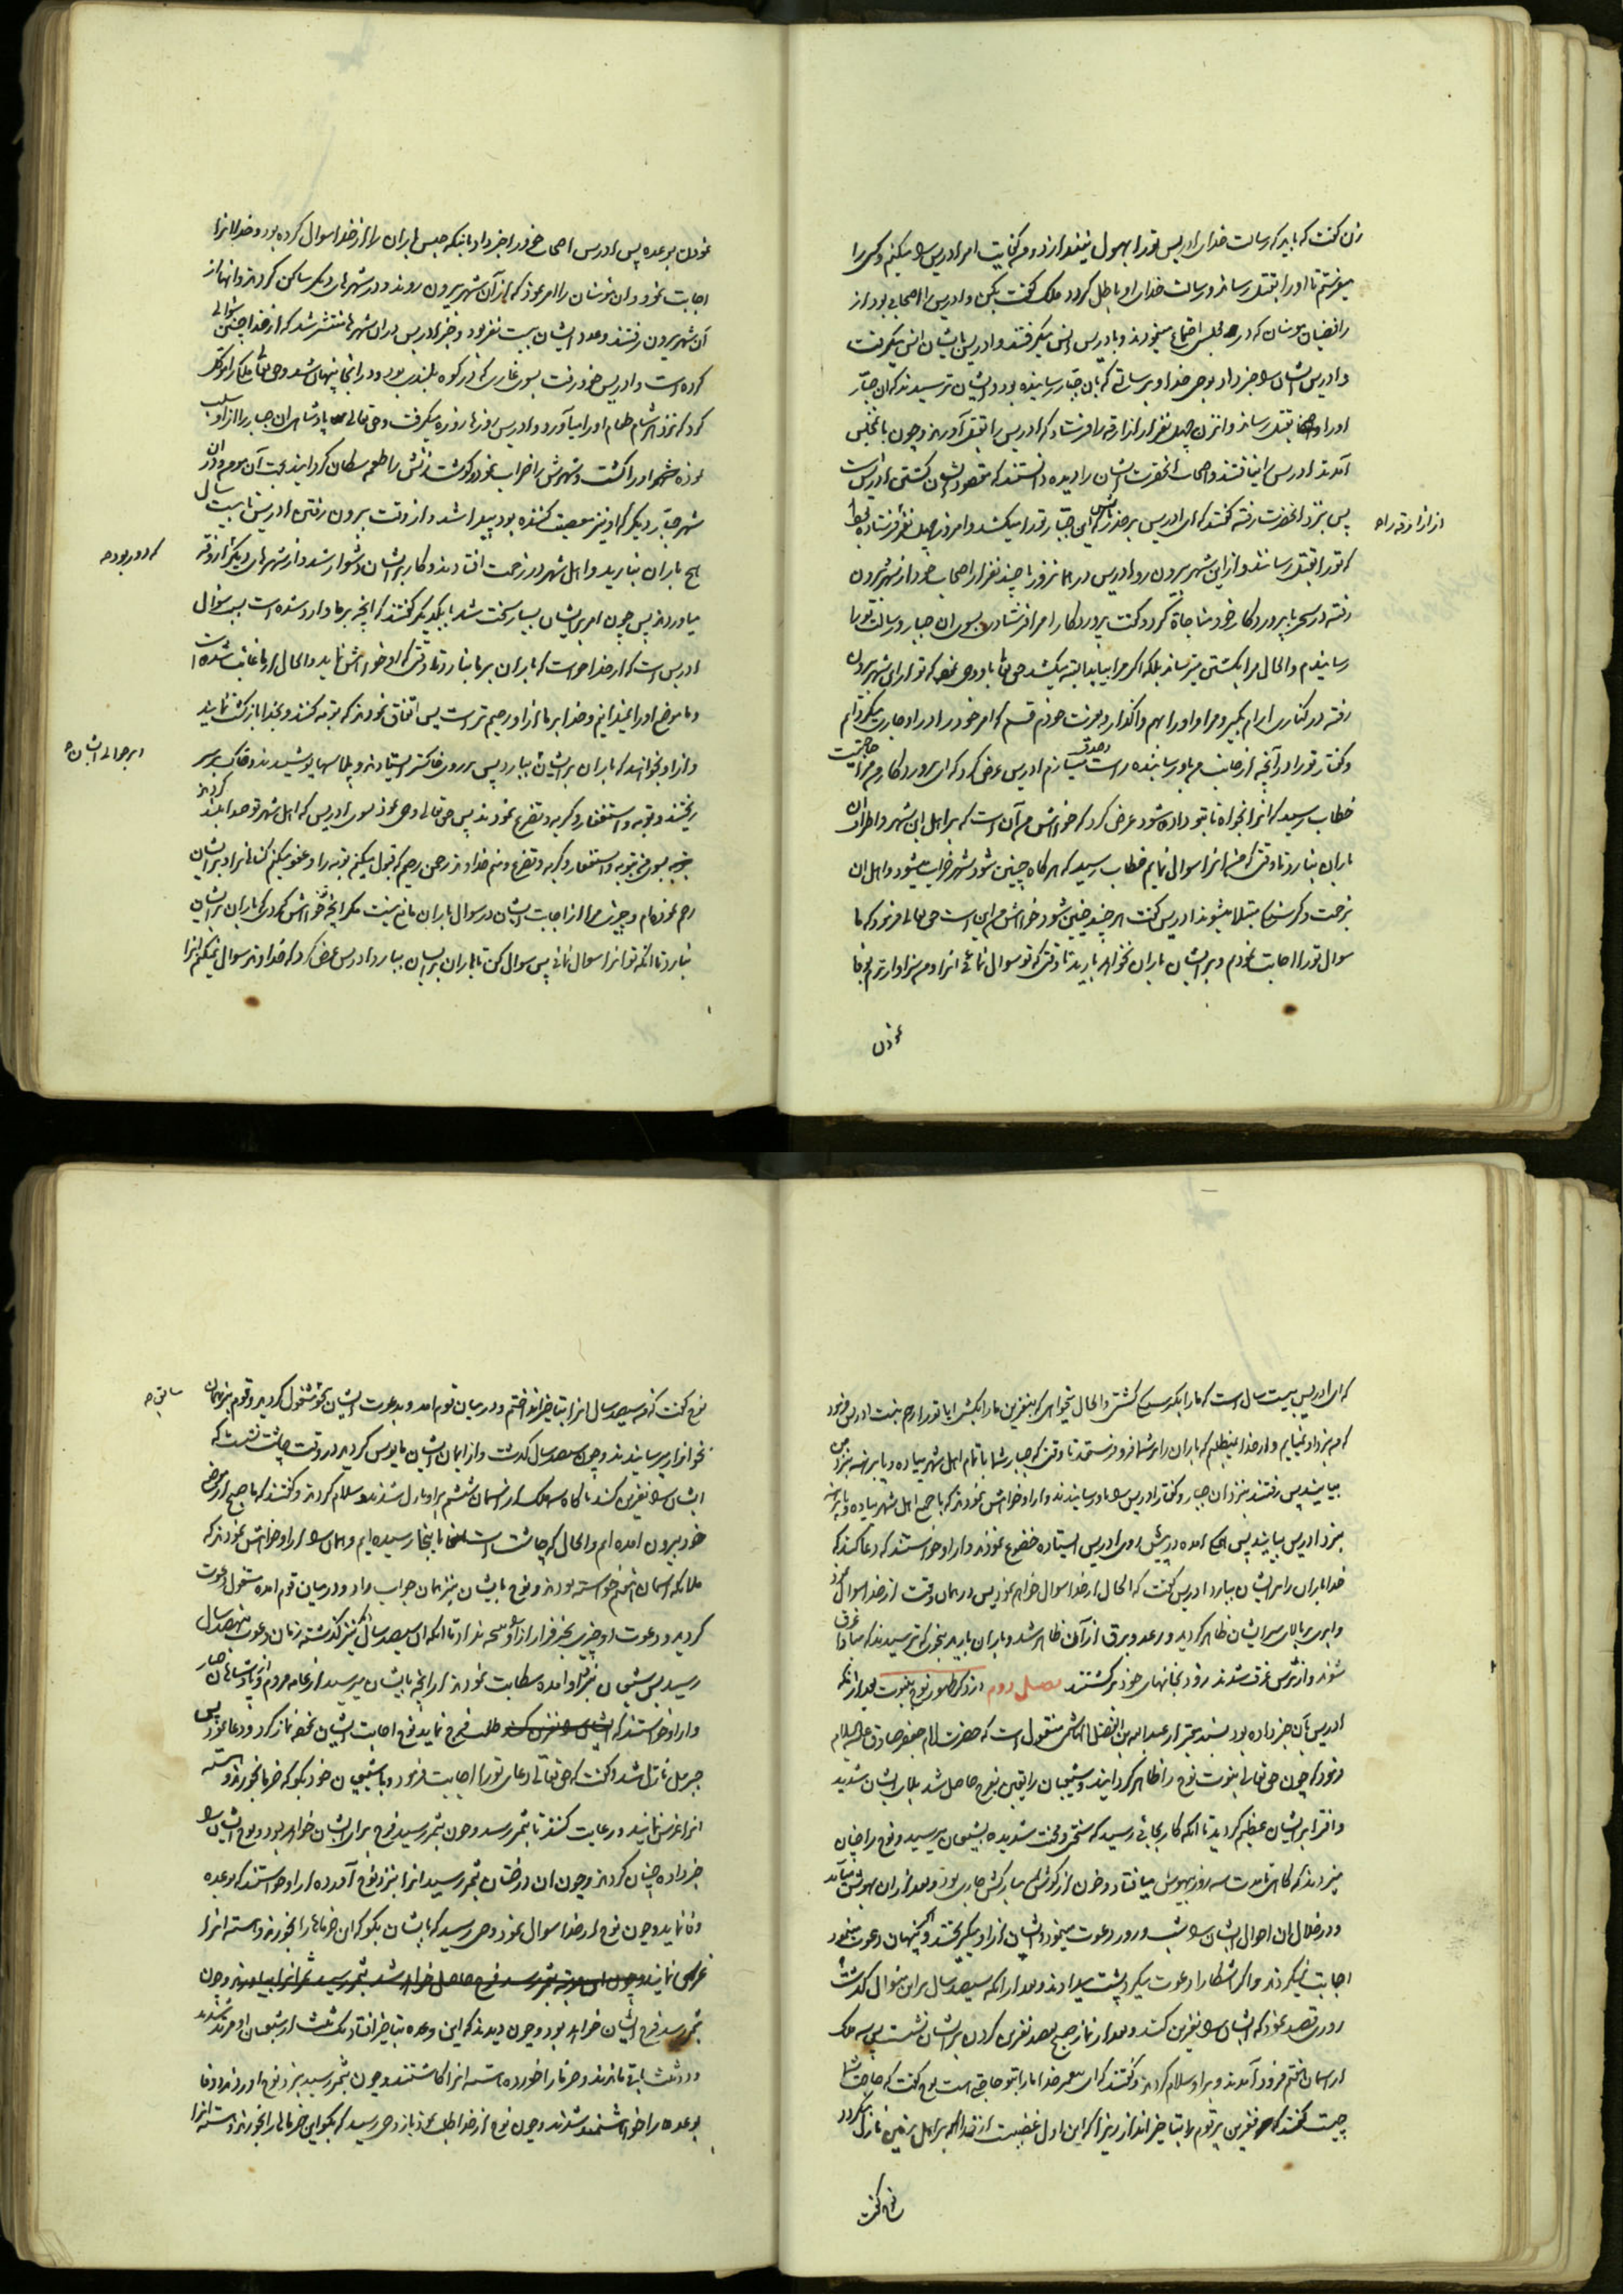 زن گفت که باید که رسالت خدای ادریس تو را بهول نیفکند از دو من کفایت امر ادریس را میکنم و کسی را
میفرستم تا او را بقتل رساند و رسالت خدای او باطل گردد ملک گفت بکن و ادریس را اصحابی بود از
رافضیان مؤمنان که در مجلس اجتماع مینمودند و بادریس انس میگرفتند و ادریس بایشان انس میگرفت
و ادریس ایشان را خبر داد بوحی خدا و برسالتی که بان جبار رسانیده بود و ایشان ترسیدند که ان جبار
او را بقتل رساند و ان زن چهل نفر از ازارقه را فرستاد که ادریس را بقتل آورند و چون بان مجلس
آمدند ادریس را نیافتند و اصحاب انحضرت ایشان را دیده دانستند که مقصود ایشان کشتن ادریس است
پس بنزد انحضرت رفته گفتند که ای ادریس بر حذر باش که این جبار تو را میکشد و امروز چهل نفر فرستاده بود
از ازارقه را
که تو را بقتل رسانند و از این شهر بیرون رو ادریس در همان روز با چند نفر از اصحاب خود از شهر بیرون
رفته در سحر با پروردگار خود مناجات کرد و گفت پروردگارا مرا فرستادی بسوی ان جبار و رسالت تو را
رسانیدم و الحال مرا بکشتن میترساند بلکه اگر مرا بیابد البته میکشد حق تعالی باو وحی نمود که تو از این شهر بیرون
رفته در کناری ارام بگیر و مرا و او را بهم واگذار و بعزت خودم قسم که امر خود را در او جاری میگردانم
و گفتار تو را در آنچه از جانب من باو رسانیده راست میسازم ادریس عرض کرد که ای پروردگار من مرا حاجتیست
خطاب رسید که انرا بخواه تا بتو داده شود عرض کرد که خواهش من آن است که بر اهل این شهر و اطراف ان
باران نبارد تا وقتی که من انرا سوال نمایم خطاب رسید که هر گاه چنین شود شهر خراب میشود و اهل ان
بزحمت و گرسنگی مبتلا میشوند ادریس گفت هر چند چنین شود خواهش من این است حق تعالی فرمود که ما
سوال تو را اجابت نمودم و بر ایشان باران نخواهد بارید تا وقتی که تو سوال نمائی انرا و من سزاوارترم بوفا
نمودن
نمودن بوعده پس ادریس اصحاب خود را خبر داد بانیکه حبس باران را از خدا سوال کرده بود و خدا انرا
اجابت نمود و ان مؤمنان را امر نمود که از آن شهر بیرون روند و در شهرهای دیگر ساکن گردند و انها از
آن شهر بیرون رفتند و عدد ایشان بیست نفر بود و خبر ادریس در ان شهرها منتشر شد که از خدا چنین سوالی
کرده است و ادریس خود رفت بسوی غاری که در کوه بلندی بود و در انجا پنهان شد و حق تعالی ملکی را موکل
کرد که نزد هر شام طعام او را میآورد و ادریس روزها روزه میگرفت و حق تعالی پادشاهی ان جبار را از او سلب
نموده او را کشت و شهرش را خراب نمود و گوشت زنش را طعمه سگان گردانید بعد آن مردم و در ان
شهر جبار دیگر که او نیز معصیت کننده بود پیدا شد و از وقت بیرون رفتن ادریس تا بیست سال
هیچ باران نبارید و اهل شهر در زحمت افتادند و کار بر ایشان دشوار شد و از شهرهای دیگر ازوقه
که دور بود
میاوردند پس چون امر بر ایشان بسیار سخت شد با یکدیگر گفتند که انچه بر ما وارد شده است بسبب سوال
ادریس است که از خدا خواست که باران بر ما نبارد تا وقتی که او خواهش نماید و الحال از ما غایب شده است
و ما موضع او را نمیدانیم و خدا بر ما از او رحیم تر است پس اتفاق نمودند که توبه کنند و بخدا بازگشت نمایند
و از او بخواهند که باران بر ایشان ببارد پس بر روی خاکستر ایستادند و پلاسها پوشیدند و خاک بر سر
بر حوالی ایشان
ریختند و توبه و استغفار و گریه و تضرع نمودند پس حق تعالی وحی نمود بسوی ادریس که اهل شهر تو صدا بلند کردند
بسوی من بتوبه و استغفار و گریه و تضرع و منم خداوند رحمن رحیم که قبول میکنم توبه را و عفو میکنم گناه را و بر ایشان
رحم نموده‌ام و چیزی مرا از اجابت ایشان در سوال باران مانع نیست مگر انچه تو خواهش کردی که باران بر ایشان
نبارد تا انکه تو انرا سوال نمائی پس سوال کن تا باران بر ایشان ببارد ادریس عرض کرد که خداوندا سوال نمیکنم انرا
که ای ادریس بیست سال است که ما را بگرسنگی کشتی و الحال میخواهی که بنفرین ما را بکشی ایا تو را رحم نیست ادریس فرمود
که من بنزد او نمیایم و از خدا نمیطلبم که باران را بر شما فرو فرستد تا وقتی که جبار شما با تمام اهل شهر پیاده و پا برهنه بنزد من
بیایند پس رفتند بنزد ان جبار و گفتار ادریس را باو رسانیدند و از او خواهش نمودند که با جمیع اهل شهر پیاده و پا برهنه
بنزد ادریس بیایند پس همگی امده در پیش روی ادریس ایستاده خضوع نمودند و از او خواستند که دعا کند که
خدا باران را بر ایشان ببارد ادریس گفت که الحال از خدا سوال خواهم نمود پس در همان وقت از خدا سوال نمود
و ابری بالای سر ایشان ظاهر گردید و رعد و برق از آن ظاهر شد و باران بارید بنحوی که ترسیدند که مبادا غرق
شوند و از ترس غرق شدند زود بخانهای خود برگشتند فصل دوم در ذکر ظهور نوح بنبوت بعد از انکه
ادریس بان خبر داده بود بسند معتبر از عبد الله بن الفضل الهاشمی منقول است که حضرت امام جعفر صادق علیه السلام
فرمود که چون حق تعالی نبوت نوح را ظاهر گردانید و شیعیان را یقین بفرج حاصل شد بلای ایشان شدید
و افترا بر ایشان عظیم گردید تا انکه کار بجائی رسید که سختی و محنت شدیده بشیعیان میرسید و نوح را چنان
میزدند که گاهی تا مدت سه روز بیهوش میافتاد و خون از گوشهای مبارکش جاری بود و بعد از ان بهوش میآمد
و در خلال ان احوال ایشان را شب و روز دعوت مینمود و ایشان از او میگریختند و اگر پنهان دعوت مینمود
اجابت نمیکردند و اگر اشکارا دعوت میکرد پشت میدادند و بعد از انکه سیصد سال بر این منوال گذشت
روزی قصد نمود که ایشان را نفرین کند و بعد از نماز صبح بقصد نفرین کردن بر ایشان نشست پس سه ملک
از اسمان هفتم فرود آمدند و بر او سلام کردند و گفتند که ای پیغمبر خدا ما را بتو حاجتی است نوح گفت که حاجت شما
چیست گفتند که نفرین بر قوم را بتاخیر انداز زیرا که این اول غضبیست از خدا که بر اهل زمین نازل میگردد
نوح گفت
نوح گفت که من سیصد سال انرا بتاخیر انداختم و در میان قوم امد و بدعوت ایشان مشغول گردید و قوم بهمان
سابق
نحو ازار میرسانیدند و چون سیصد سال گذشت و از ایمان ایشان مایوس گردید در وقت چاشت نشست که
ایشان را نفرین کند ناگاه سه ملک از اسمان ششم بر او نازل شدند و سلام کردند و گفتند که ما صبح از موضع
خود بیرون امده ایم و الحال که چاشت است باینجا رسیده ایم و همان را از او خواهش نمودند که
ملایکه اسمان هفتم خواسته بودند و نوح بایشان نیز همان جواب داد و در میان قوم امده مشغول دعوت
گردید و دعوت او چیزی بجز فرار از او نتیجه نداد تا انکه ان سیصد سال دیگر نیز گذشته زمان دعوت بنهصد سال
رسید پس شیعیان بنزد او امده شکایت نمودند از انچه بایشان میرسید از عامه مردم و از پادشاهان جبار
و از او خواستند که طلب فرج نماید نوح اجابت ایشان نموده نماز کرد و دعا نمود پس
جبرئیل نازل شد و گفت که حق تعالی دعای تو را اجابت فرمود و با شیعیان خود بگو که خرما بخورند و هسته
انرا غرس نمایند و رعایت کنند تا بثمر رسد و چون بثمر رسید فرج برای ایشان خواهد بود و نوح ایشان را
خبر داده چنان کردند و چون ان درختان بثمر رسید انرا بنزد نوح آورده از او خواستند که بوعده
وفا نماید و چون نوح از خدا سوال نمود وحی رسید که بایشان بگو که این خرماها را بخورند و هسته انرا
غرس نمایند و چون
بثمر رسد فرج ایشان خواهد بود و چون دیدند که این وعده بتاخیر افتاد یک ثلث از شیعیان او مرتد شدند
و دو ثلث باقی ماندند و خرما را خورده هسته انرا کاشتند و چون بثمر رسید بنزد نوح آوردند و وفا
بوعده را خواهشمند شدند و چون نوح از خدا طلب نمود باز وحی رسید که بگو این خرما را بخورند و هسته انرا